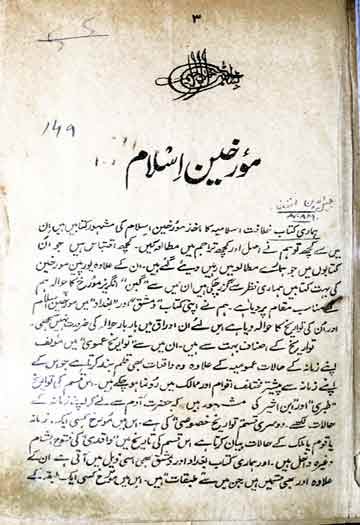 ۳
149
مؤرخین اسلام
ہماری کتاب خلافت اسلامیہ کا ماخذ مؤرخین اسلام کی مشہور کتابیں ہیں ان
میں سے کچھ تو ہم نے اصل اور کچھ تراجم میں مطالعہ کیں۔ کچھ اقتباس ہیں جو ان
کتابوں میں جو ہمارے مطالعہ میں رہیں دیئے گئے ہیں۔ ان کے علاوہ یورپین مورخین
کی بہت کتابیں ہماری نظر سے گزر چکی ہیں ان میں سے "گبن" انگریز مورخ کا حوالہ ہم
نے مناسب مقام پر دیا ہے۔ ہم نے اپنی کتاب "دمشق" اور "بغداد" میں مورخین اسلام
اور ان کی تواریخ کا حوالہ دیا ہے اس لئے ان اوراق میں بار بار حوالہ کی ضرورت نہیں سمجھی۔
تواریخ کے اصناف بہت سے ہیں۔ ان میں سے "تواریخ عمومی" میں مؤلف
اپنے زمانہ کے حالات عمومیہ کے علاوہ وہ واقعات بھی قلم بند کرتا ہے جو اس کے
اپنے زمانہ سے پیشتر مختلف اقوام اور ممالک میں رونما ہو چکے ہیں۔ اس قسم کی تواریخ
"طبری" اور "ابن اثیر" کی مشہور ہیں کہ حضرت آدم سے لے کر اپنے زمانہ کے
حالات لکھے۔ دوسری قسم تواریخ خصوصی کی ہے۔ اس میں مؤرخ کسی ایک زمانہ
یا قوم یا ملک کے حالات بیان کرتا ہے اس قسم کی تاریخ میں "واقدی" کی فتوح الشام
وغیرہ داخل ہیں۔ اور ہماری کتاب بغداد اور دمشق بھی اسی ذیل میں آتی ہے ان کے
علاوہ اور بھی قسمیں ہیں جن میں سے "طبقات" ہیں۔ اس میں مؤرخ کسی ایک طبقہ کے